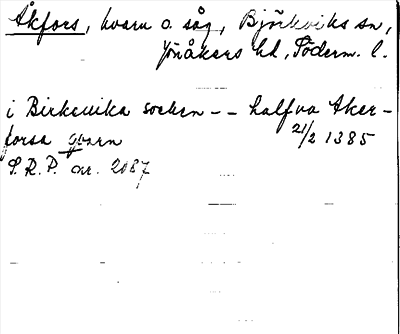 Åkfors, kvarn o. såg, Björkviks sn,
Jönåkers hd, Söderm. l.
i Birkeuika socken - - halfva Aker-
forsa qvarn 21/2 1385
S.R.P. nr. 2087